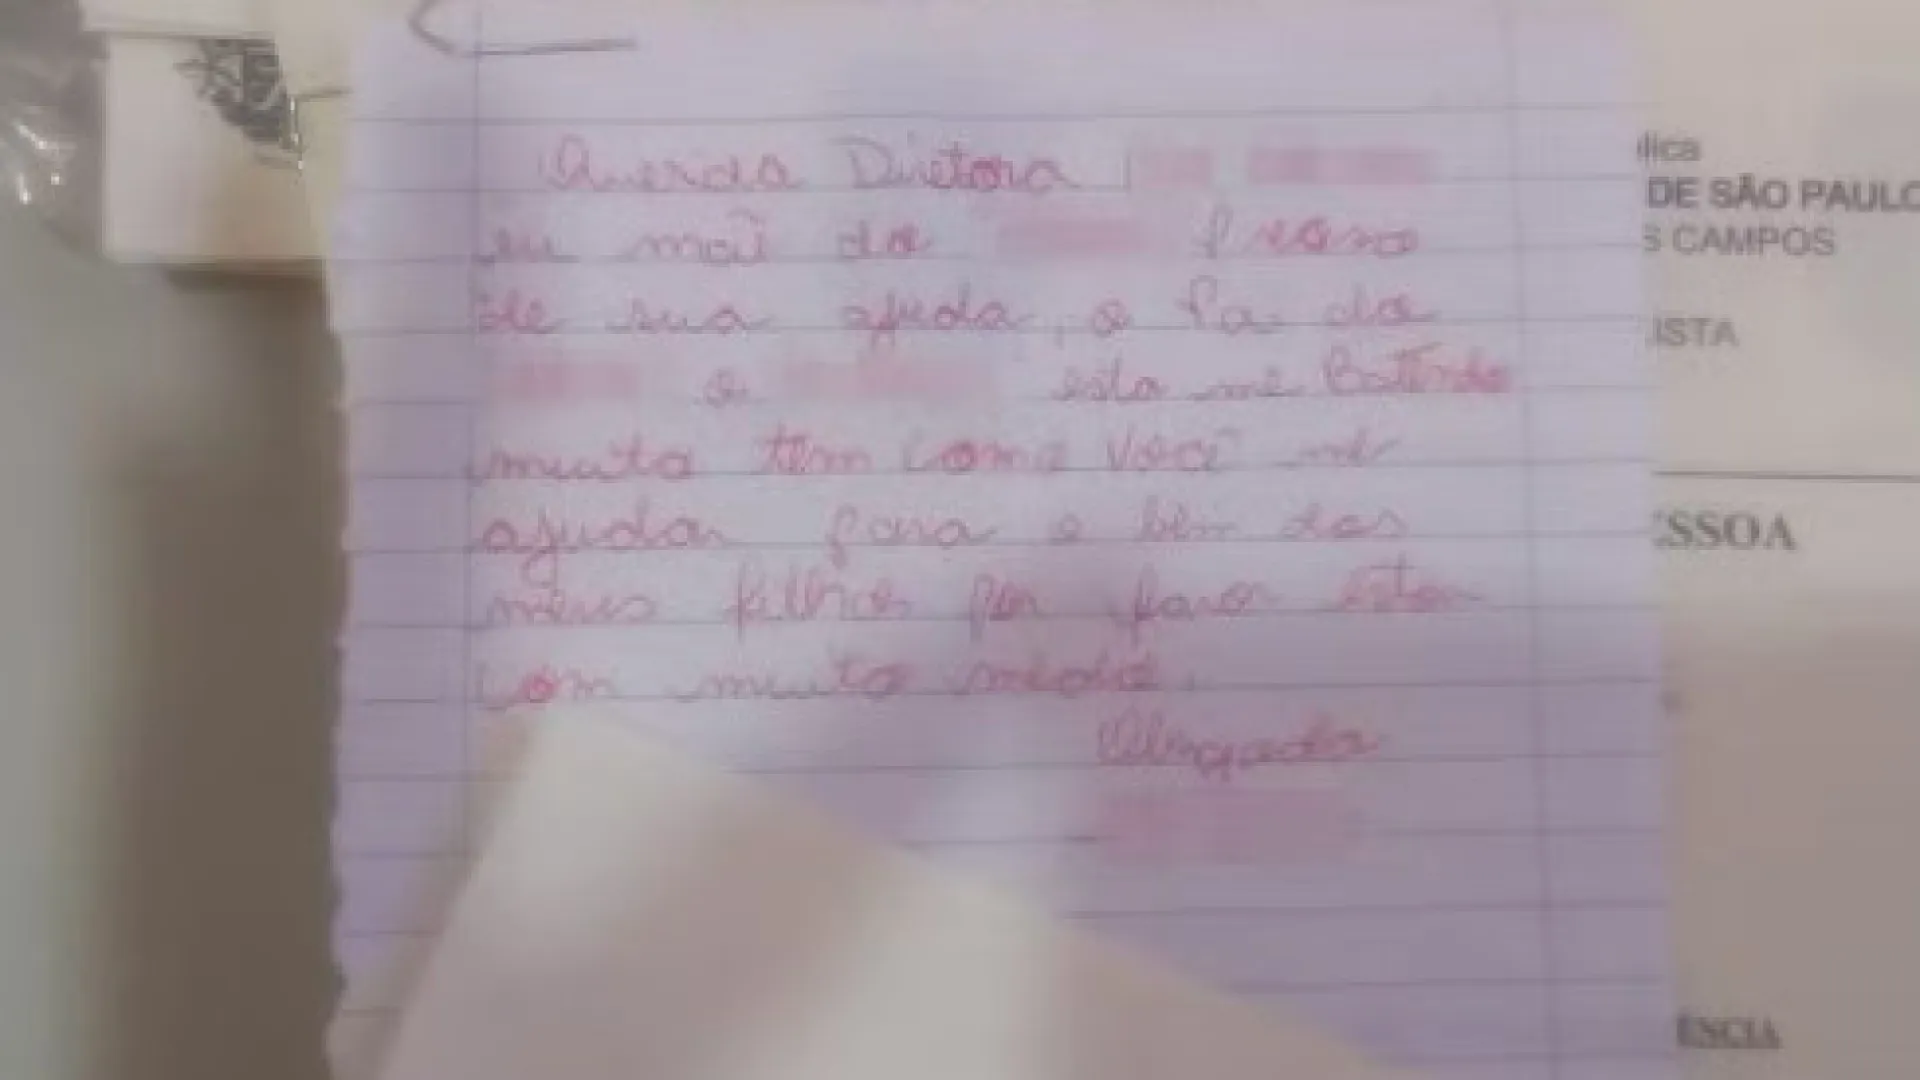 Querida Diretora
eu mãe da preciso
de sua ajuda, o Pai da
e esta me Batendo
muito tem como você me
ajudar para o bem dos
meus filhos por favor estou
com muito medo.
Obrigada
lica
DE SÃO PAULO
S CAMPOS
ISTA
ESSOA
ENCIA